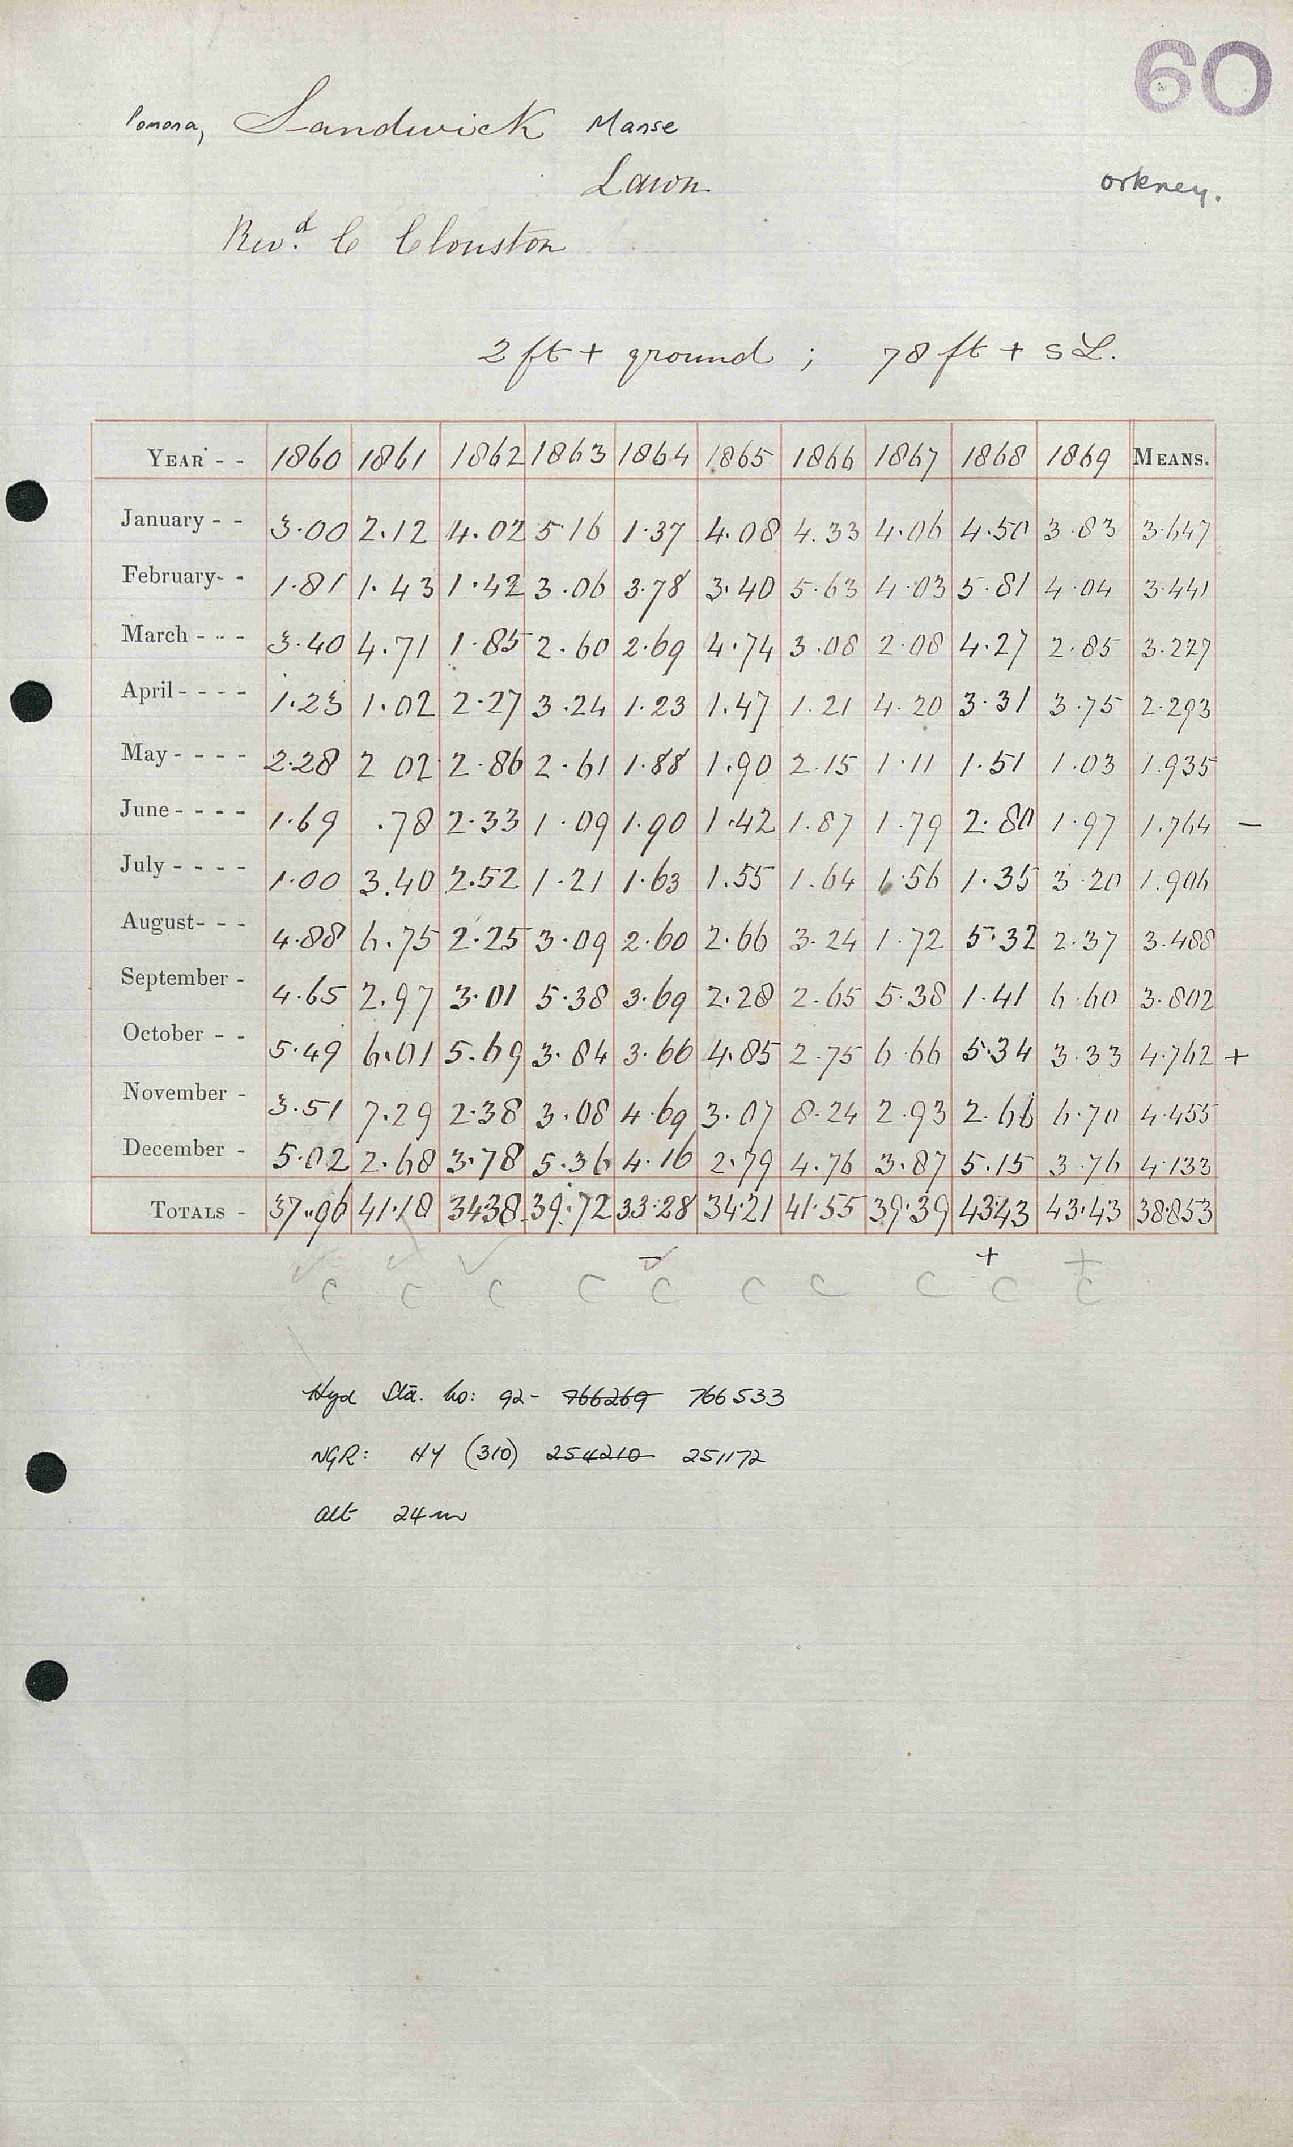 60
Pomona, Sandwick Manse
Lawn
Orkney.
Revd. C Clouston
2 ft + ground ; 78 ft + S L.
YEAR - - 1860 1861 1862 1863 1864 1865 1866 1867 1868 1869 MEANS.
January - - 3.00 2.12 4.02 5.16 1.37 4.08 4.33 4.06 4.50 3.83 3.647
February- - 1.81 1.43 1.42 3.06 3.78 3.40 5.63 4.03 5.81 4.04 3.441
March - - - 3.40 4.71 1.85 2.60 2.69 4.74 3.08 2.08 4.27 2.85 3.227
April - - - - 1.23 1.02 2.27 3.24 1.23 1.47 1.21 4.20 3.31 3.75 2.293
May - - - - 2.28 2 02 2.86 2.61 1.88 1.90 2.15 1.11 1.51 1.03 1.935
June - - - - 1.69 .78 2.33 1.09 1.90 1.42 1.87 1.79 2.80 1.97 1.764 —
July - - - - 1.00 3.40 2.52 1.21 1.63 1.55 1.64 1.56 1.35 3.20 1.906
August- - - 4.88 6.75 2.25 3.09 2.60 2.66 3.24 1.72 5.32 2.37 3.488
September - 4.65 2.97 3.01 5.38 3.69 2.28 2.65 5.38 1.41 6.60 3.802
October - - 5.49 6.01 5.69 3.84 3.66 4.85 2.75 6.66 5.34 3.33 4.762 +
November - 3.51 7.29 2.38 3.08 4.69 3.07 8.24 2.93 2.66 6.70 4.455
December - 5.02 2.68 3.78 5.36 4.16 2.79 4.76 3.87 5.15 3.76 4.133
TOTALS - 37.96 41.18 34.38 39.72 33.28 34.21 41.55 39.39 43.43 43.43 38.853
— + +
C C C C C C C C C C
Hyd Sta. No: 92- 766269 766533
NGR: HY (310) 254210 251172
Alt 24m